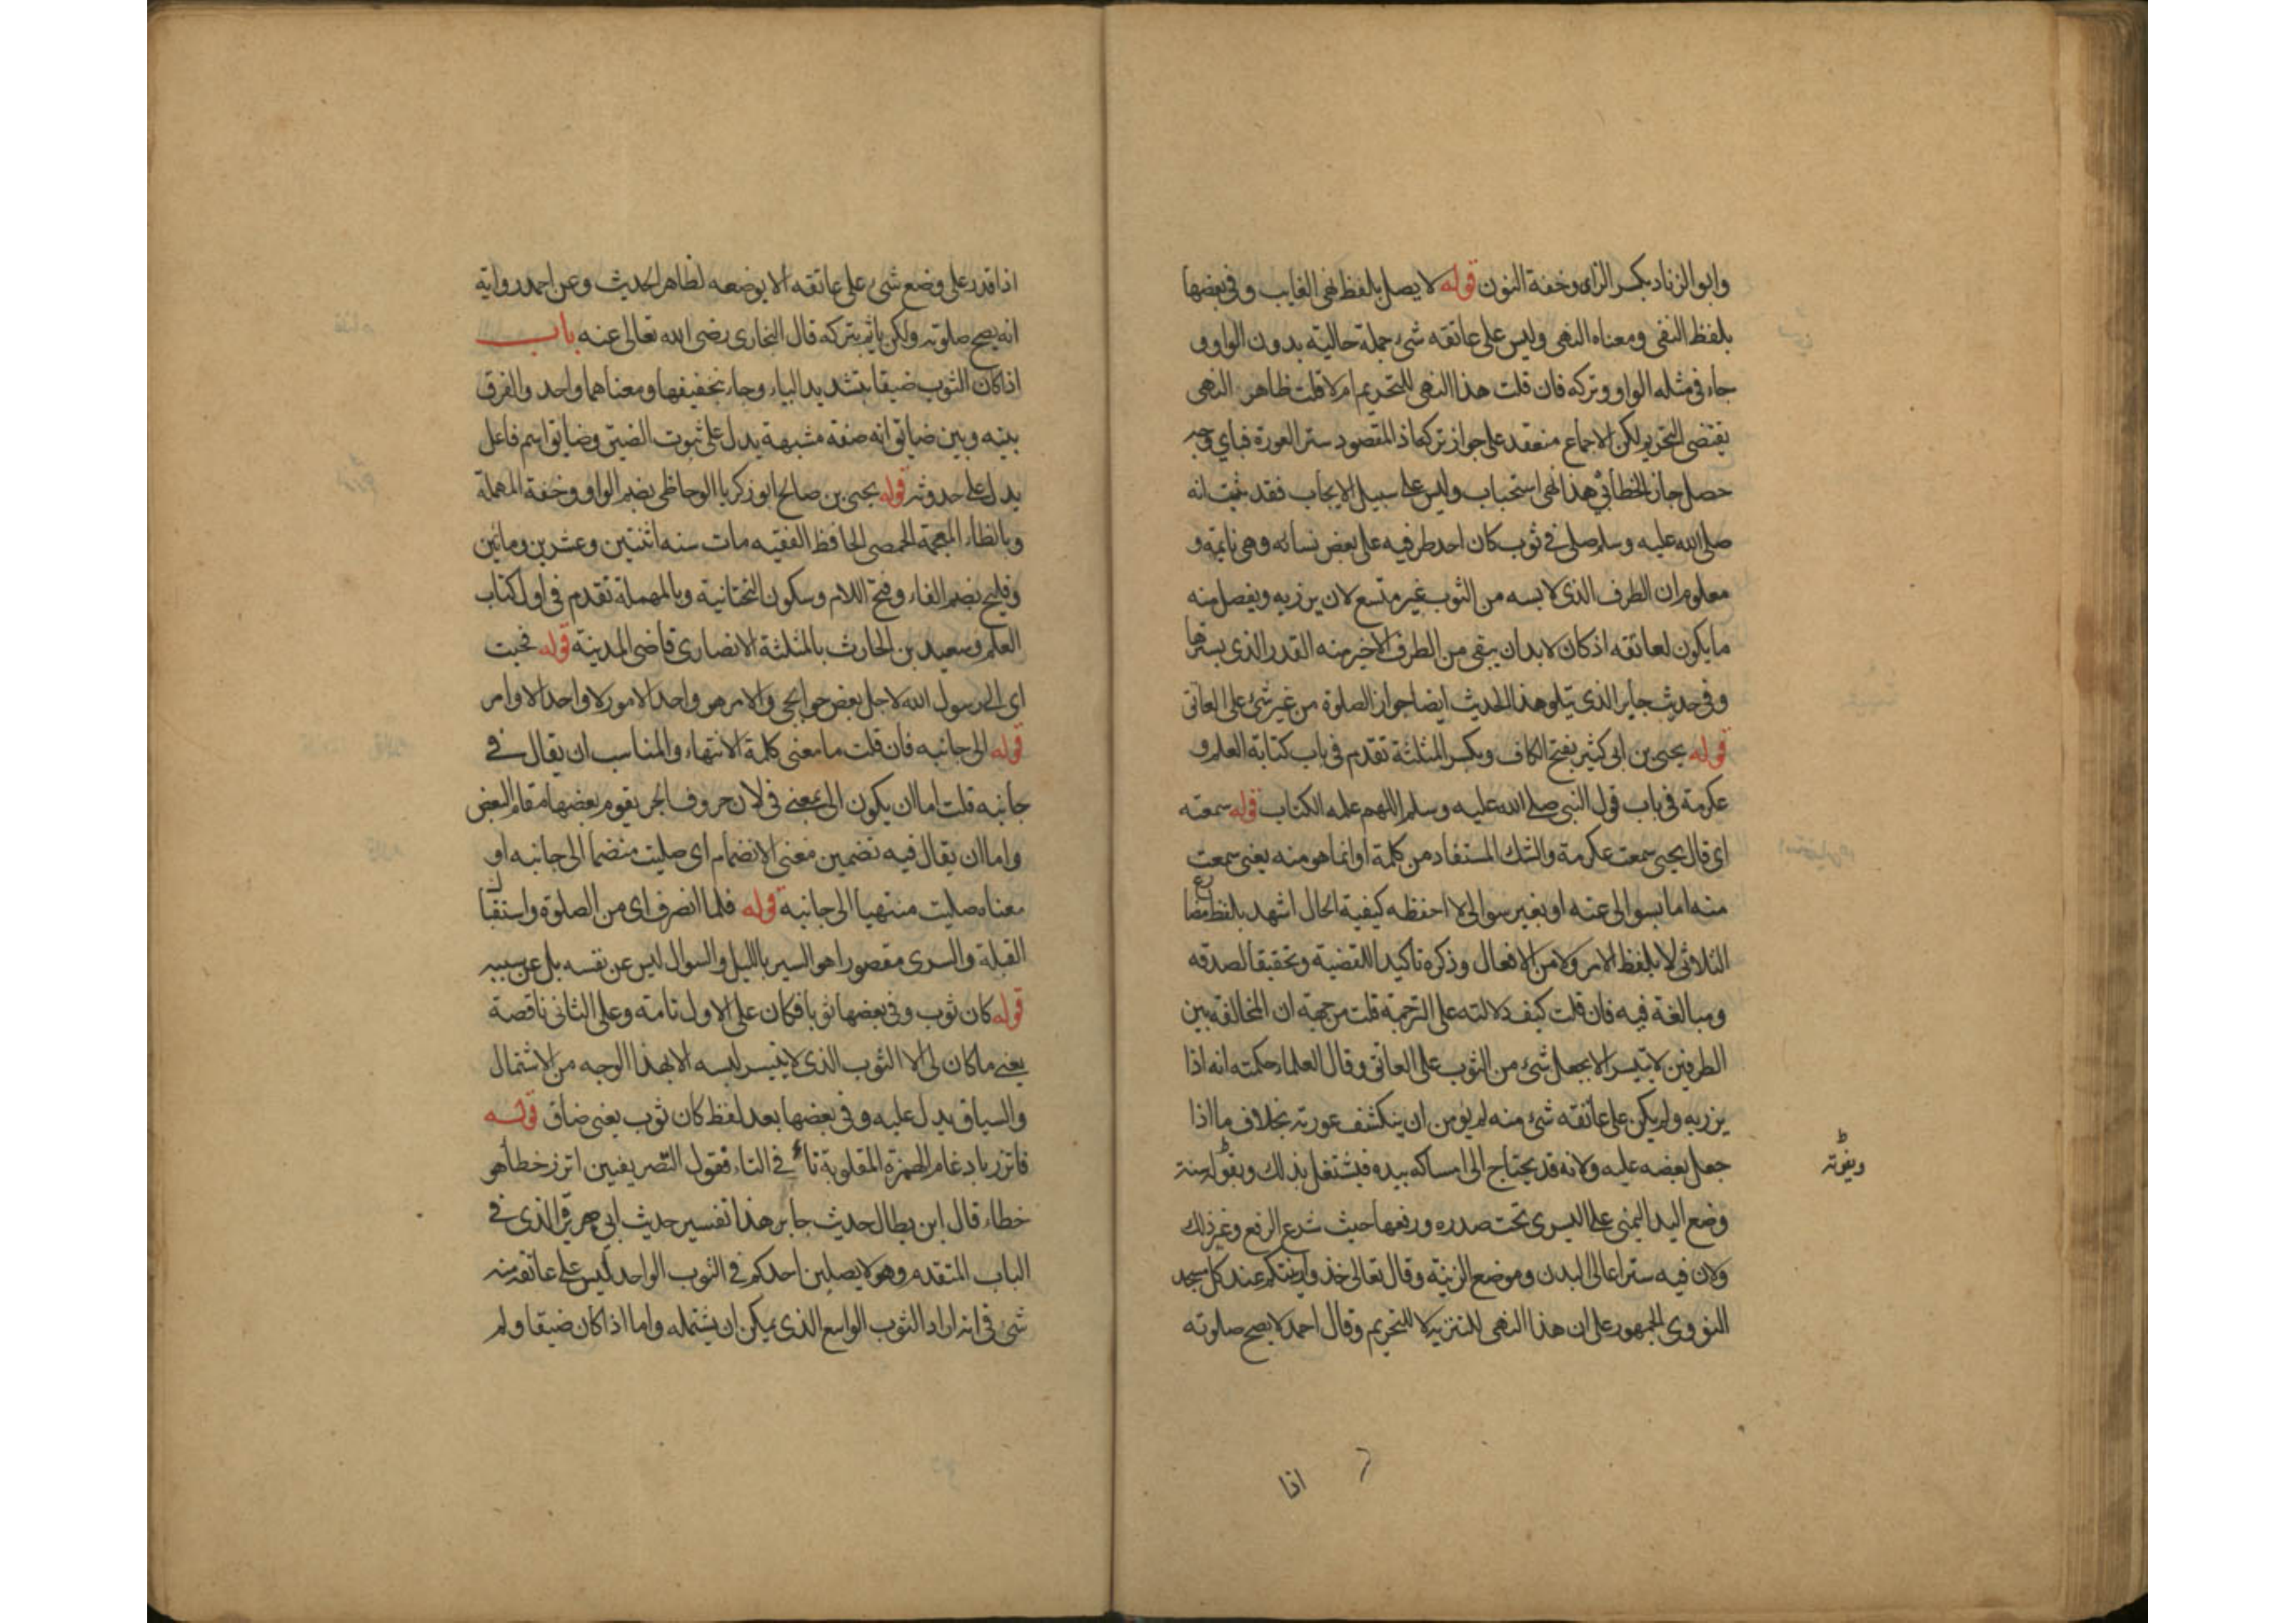 وابو الزناد بكسر الزاى وخفة النون قوله لا يصل بلفظ نهى الغايب وفى بعضها
بلفظ النفى ومعناه النهى وليس على عاتقه شئ جملة حالية بدون الواو و
جاء فى مثله الواو وتركه فان قلت هذا النهى للتحريم ام لا قلت ظاهر النهى
يقتضى التحريم لكن الاجماع منعقد على جواز تركه اذ المقصود ستر العورة فباي وجه
حصل جاز الخطابي هذا نهى استحباب وليس على سبيل الايجاب فقد ثبت انه
صلى الله عليه وسلم صلى فى ثوب كان احد طرفيه على بعض نسائه وهى نايمة و
معلوم ان الطرف الذى لابسه من الثوب غير متسع لان يزر به ويفصل منه
ما يكون لعاتقه اذ كان لا بد ان يبقى من الطرف الاخر منه القدر الذى يسترها
وفى حديث جابر الذى يتلو هذا الحديث ايضا جواز الصلوة من غير شئ على العاتق
قوله يحيى بن ابى كثير بفتح الكاف وبكسر المثلثة تقدم فى باب كتابة العلم و
عكرمة فى باب قول النبى صلى الله عليه وسلم اللهم علمه الكتاب قوله سمعته
اى قال يحيى سمعت عكرمة والشك المستفاد من كلمة او انما هو منه يعنى سمعت
منه اما بسوالى عنه او بغير سوالى لا احفظه كيفية الحال اشهد بلفظ مضارع
الثلاثى لا بلفظ الامر ولا من الافعال وذكره تاكيدا للقضية وتحقيقا لصدقه
ومبالغة فيه فان قلت كيف دلالته على الترجمة قلت من جهة ان المخالفة بين
الطرفين لا تتيسر الا بجعل شئ من الثوب على العاتق وقال العلماء حكمته انه اذا
يزر به ولم يكن على عاتقه شئ منه لم يومن ان ينكشف عورته بخلاف ما اذا
جعل بعضه عليه ولانه قد يحتاج الى امساكه بيده فيشتغل بذلك ويفوته سنة
ويفوته
وضع اليد اليمنى على اليسرى تحت صدره ورفعها حيث شرع الرفع وغير ذلك
ولان فيه ستر اعالى البدن وموضع الزينة وقال تعالى خذوا زينتكم عند كل مسجد
النووى الجمهور على ان هذا النهى للتنزيه لا للتحريم وقال احمد لا يصح صلوته
اذا
اذا قدر على وضع شئ على عاتقه الا بوضعه لظاهر الحديث وعن احمد رواية
انه يصح صلوته ولكن ياثم بتركه قال البخارى رضى الله تعالى عنه باب
اذا كان الثوب ضيقا بتشديد الياء وجاء تخفيفها ومعناهما واحد والفرق
بينه وبين ضايق انه صفة مشبهة يدل على ثبوت الضيق وضايق اسم فاعل
يدل على حدوثه قوله يحيى بن صالح ابو زكريا الوحاظى بضم الواو وخفة المهملة
وبالظاء المعجمة الحمصى الحافظ الفقيه مات سنه اثنتين وعشرين ومائين
وفليح بضم الفاء وفتح اللام وسكون التحتانية وبالمهملة تقدم فى اول كتاب
العلم وسعيد بن الحارث بالمثلثة الانصارى قاضى المدينة قوله فجئت
اى الى رسول الله لاجل بعض حوايجى والامر هو واحد الامور لا واحد الاوامر
قوله الى جانبه فان قلت ما معنى كلمة الانتهاء والمناسب ان يقال فى
جانبه قلت اما ان يكون الى بمعنى فى لان حروف الجر يقوم بعضها مقام البعض
واما ان يقال فيه تضمين معنى الانضمام اى صليت منضما الى جانبه او
معناه صليت منتهيا الى جانبه قوله فلما انصرف اى من الصلوة واستقبال
القبلة والسرى مقصورا هو السير بالليل والسوال ليس عن نفسه بل عن سببه
قوله كان ثوب وفى بعضها ثوبا فكان على الاول تامة وعلى الثانى ناقصة
يعنى ما كان لى الا الثوب الذى لا يتيسر لبسه الا بهذا الوجه من الاشتمال
والسياق يدل عليه وفى بعضها بعد لفظ كان ثوب يعنى ضاق قوله
فاتزر بادغام الهمزة المقلوبة تاء فى التاء فقول التصريفيين اتزر خطا هو
خطاء قال ابن بطال حديث جابر هذا تفسير حديث ابى هريرة الذى فى
الباب المتقدم وهو لا يصلين احدكم فى الثوب الواحد ليس على عاتقه منه
شئ فى انه اراد الثوب الواسع الذى يمكن ان يشتمله واما اذا كان ضيقا ولم